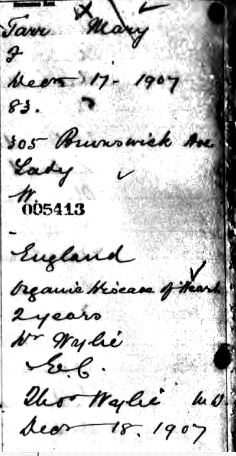 Tarr Mary
F
Decr 17 - 1907
83.
305 Brunswick Ave
Lady
W.
005413
-
England
Organic Disease of Heart
2 years
Dr Wylie
E.C.
Thos Wylie M D
Decr 18. 1907